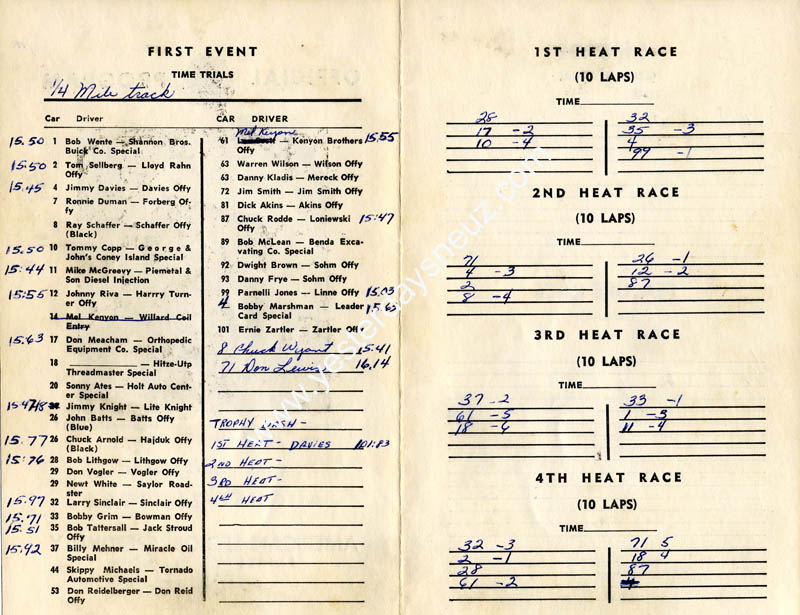 FIRST EVENT
TIME TRIALS
1/4 Mile track
Car Driver
15.50 1 Bob Wente — Shannon Bros.
Buick Co. Special
15.50 2 Tom Sellberg — Lloyd Rahn
Offy
15.45 4 Jimmy Davies — Davies Offy
7 Ronnie Duman — Forberg Of-
fy
8 Ray Schaffer — Schaffer Offy
(Black)
15.50 10 Tommy Copp — George &
John's Coney Island Special
15.44 11 Mike McGreevy — Piemetal &
Son Diesel Injection
15.55 12 Johnny Riva — Harrry Turn-
er Offy
14 Mel Kenyon — Willard Coil
Entry
15.63 17 Don Meacham — Orthopedic
Equipment Co. Special
18 — Hitze-Utp
Threadmaster Special
20 Sonny Ates — Holt Auto Cent-
er Special
15.47 18 Jimmy Knight — Lite Knight
26 John Batts — Batts Offy
(Blue)
15.77 26 Chuck Arnold — Hajduk Offy
(Black)
15.76 28 Bob Lithgow — Lithgow Offy
29 Don Vogler — Vogler Offy
29 Newt White — Saylor Road-
ster
15.97 32 Larry Sinclair — Sinclair Offy
15.71 33 Bobby Grim — Bowman Offy
15.51 35 Bob Tattersall — Jack Stroud
Offy
15.42 37 Billy Mehner — Miracle Oil
Special
44 Skippy Michaels — Tornado
Automotive Special
53 Don Reidelberger — Don Reid
Offy
CAR DRIVER
Mel Kenyon
61 — Kenyon Brothers 15.55
Offy
63 Warren Wilson — Wilson Offy
63 Danny Kladis — Mereck Offy
72 Jim Smith — Jim Smith Offy
81 Dick Akins — Akins Offy
87 Chuck Rodde — Loniewski 15:47
Offy
89 Bob McLean — Benda Exca-
vating Co. Special
92 Dwight Brown — Sohm Offy
93 Danny Frye — Sohm Offy
99 Parnelli Jones — Linne Offy 15.03
4 Bobby Marshman — Leader 15.65
Card Special
101 Ernie Zartler — Zartler Offy
8 Chuck Wyant 15.41
71 Don Lewis 16.14
TROPHY DASH -
1ST HEAT - DAVIES 101:83
2ND HEAT -
3RD HEAT -
4TH HEAT
1ST HEAT RACE
(10 LAPS)
TIME
28 32
17 -2 35 -3
10 -4 4
99 -1
2ND HEAT RACE
(10 LAPS)
TIME
71 26 -1
4 -3 12 -2
2 87
8 -4
3RD HEAT RACE
(10 LAPS)
TIME
37 -2 33 -1
61 -5 1 -3
18 -6 11 -4
4TH HEAT RACE
(10 LAPS)
TIME
32 -3 71 5
2 -1 18 4
28 87
61 -2
www.yesterdaysneuz.com